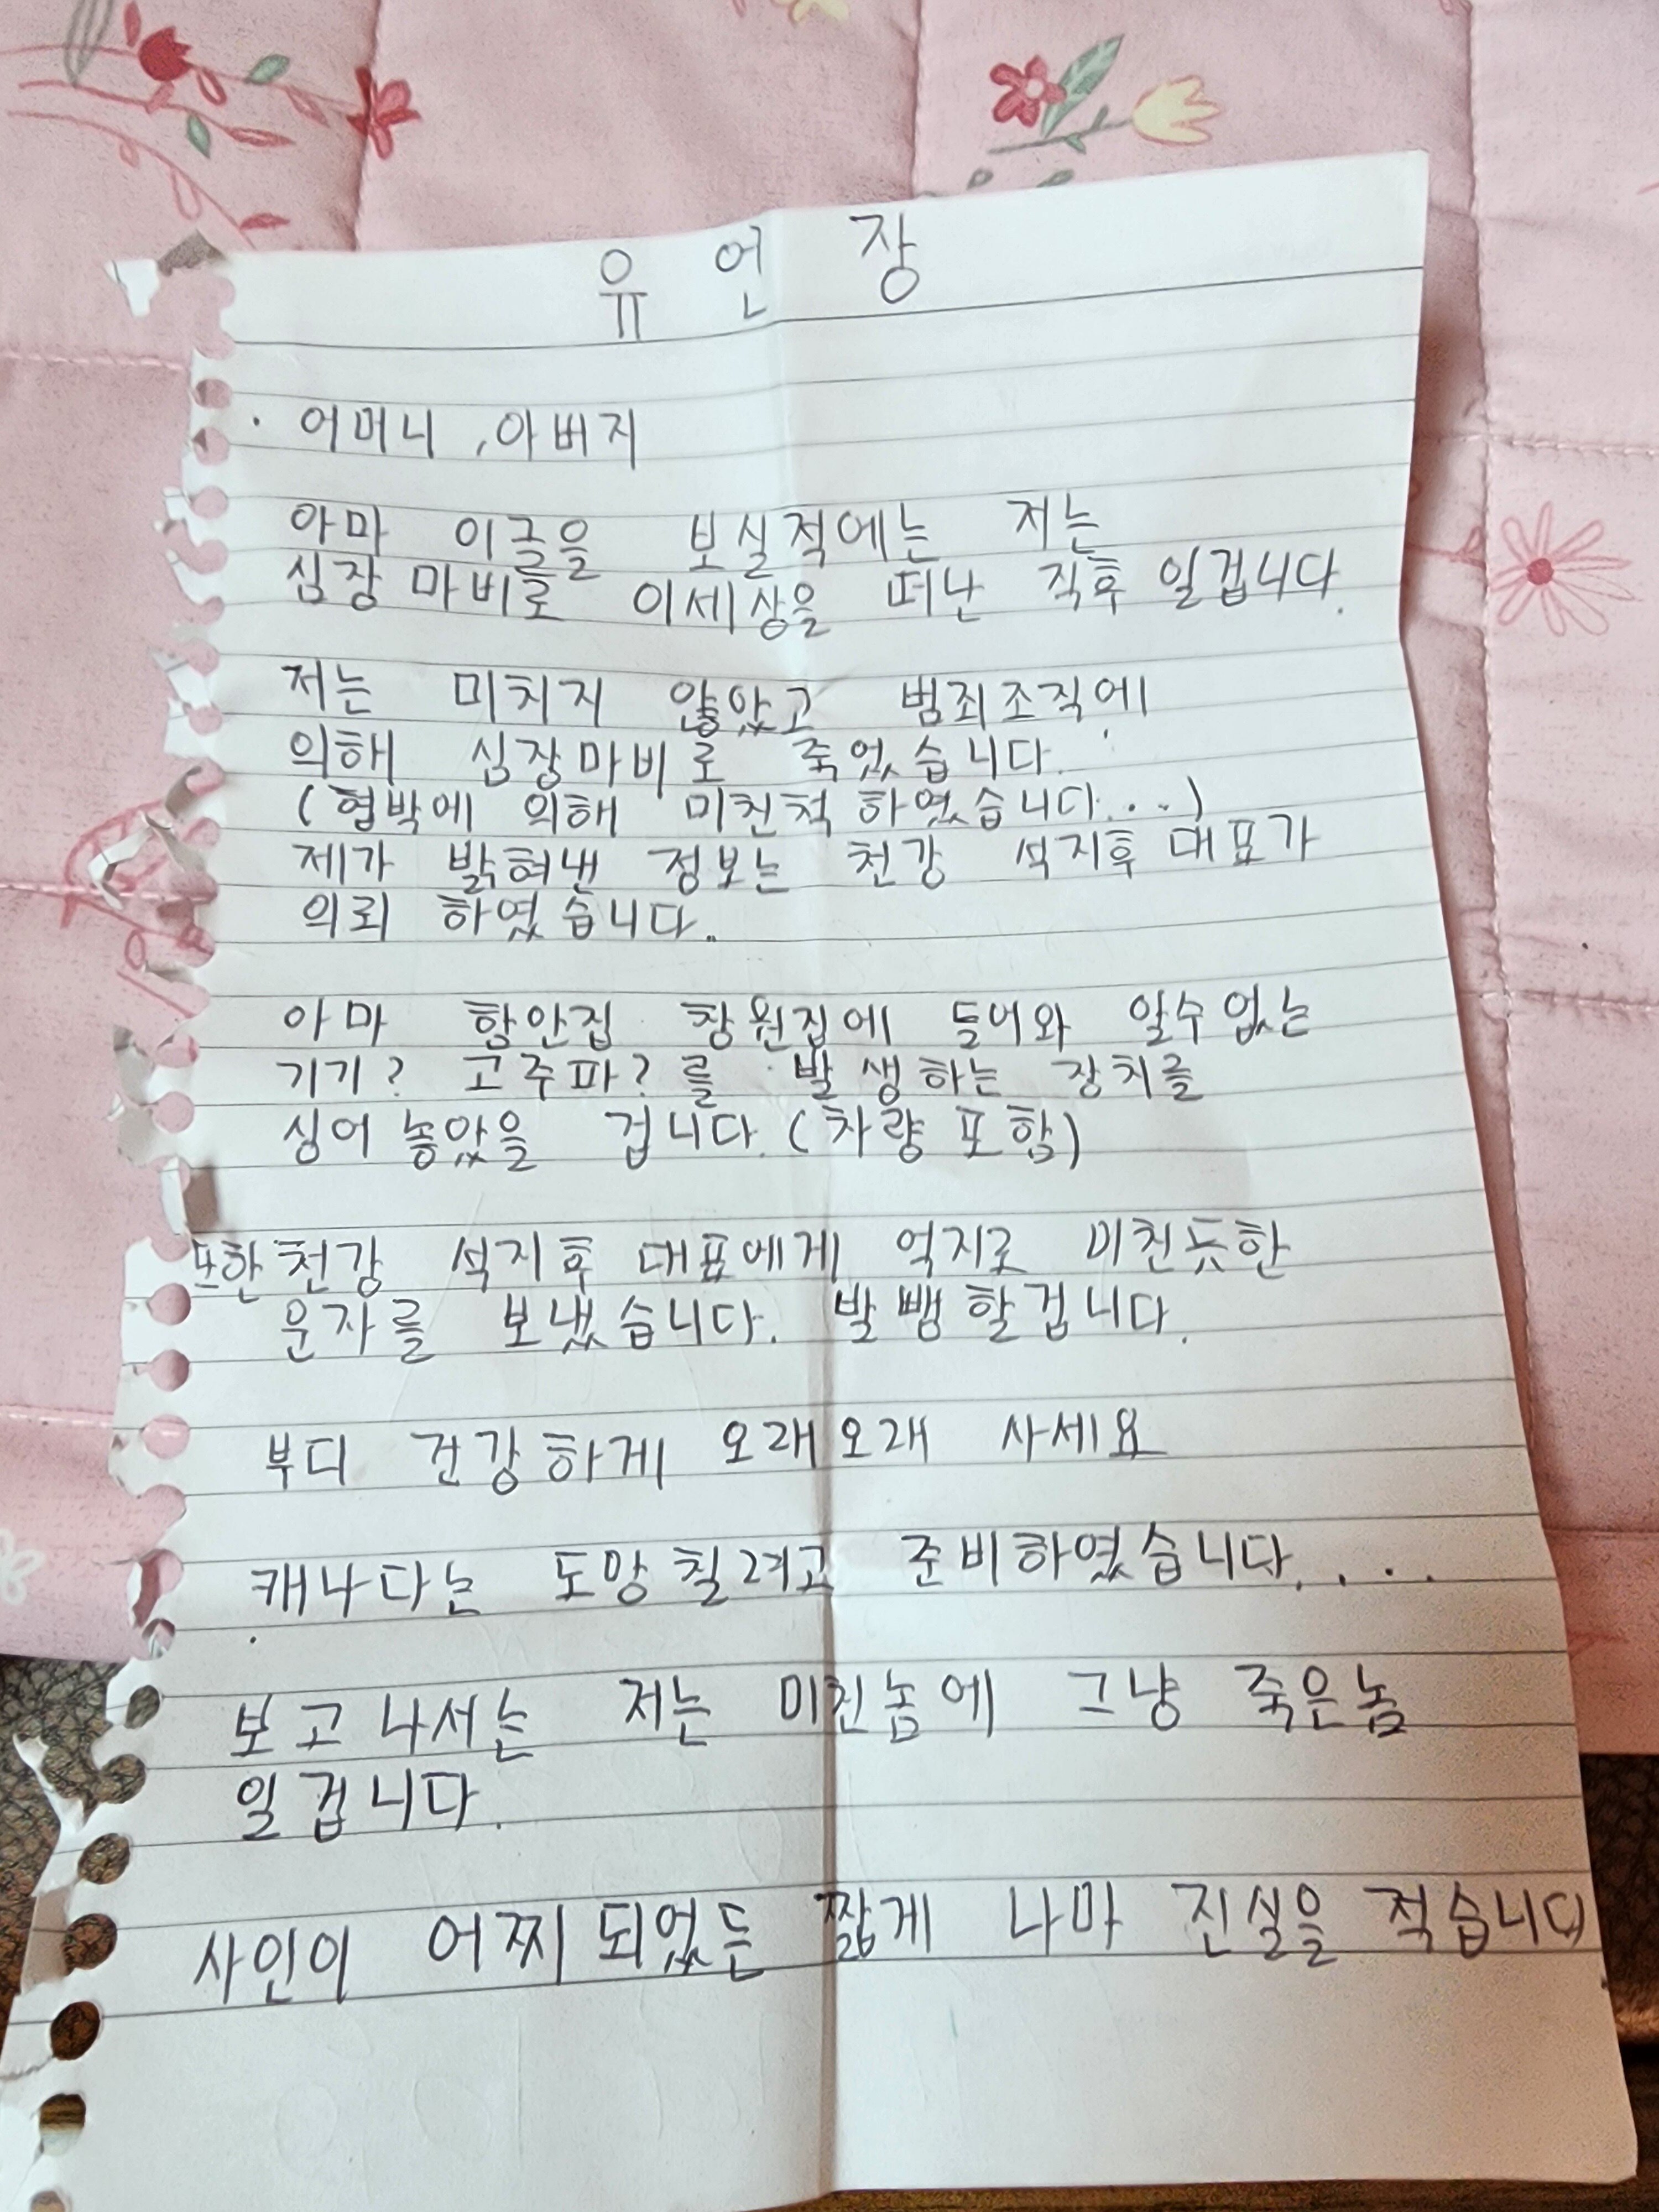 유 언 장
· 어머니 , 아버지
아마 이글을 보실적에는 저는
심장 마비로 이세상을 떠난 직후 일겁니다.
저는 미치지 않았고 범죄조직에
의해 심장마비로 죽었습니다.
(협박에 의해 미친척 하였습니다...)
제가 밝혀낸 정보는 천강 석지후 대표가
의뢰 하였습니다.
아마 함안집 창원집에 들어와 알수없는
기기? 고주파? 를 발생하는 장치를
싱어 놓았을 겁니다. (차량 포함)
또한 천강 석지후 대표에게 억지로 미친듯한
문자를 보냈습니다. 발뺑할겁니다.
부디 건강하게 오래오래 사세요
캐나다는 도망칠려고 준비하였습니다....
보고 나서는 저는 미친놈에 그냥 죽은놈
일겁니다.
사인이 어찌되었든 짧게 나마 진실을 적습니다